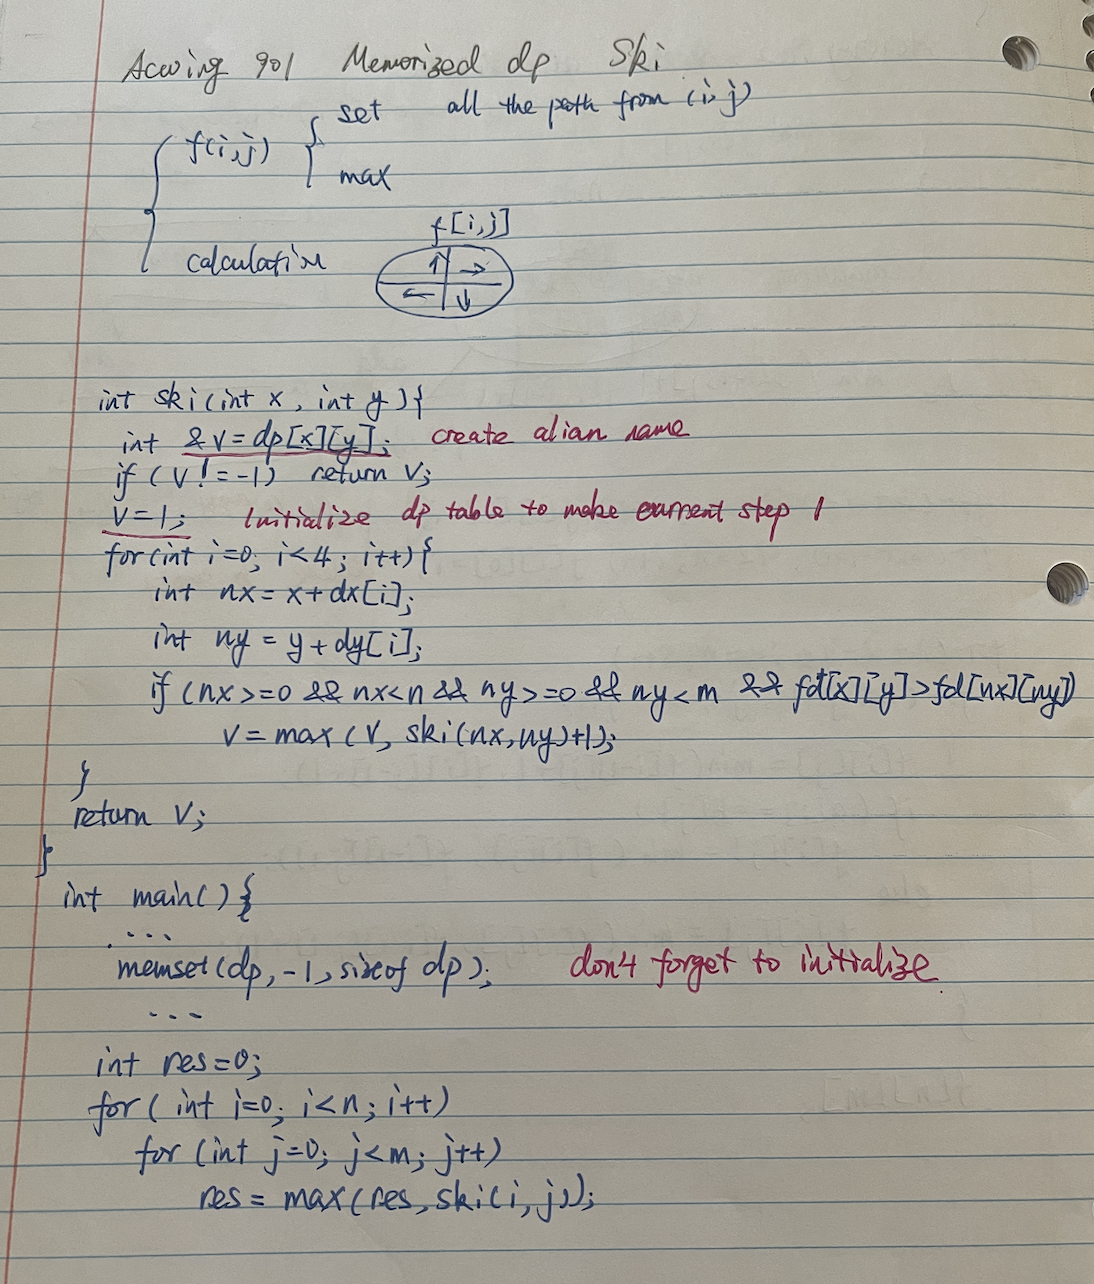 Acwing 901 Memorized dp Ski
set all the path from (i,j)
f(i,j)
max
f[i,j]
calculation
int ski(int x, int y){
int &v=dp[x][y]; create alian name
if (v!=-1) return v;
v=1; Initialize dp table to make current step 1
for(int i=0; i<4; i++){
int nx=x+dx[i];
int ny=y+dy[i];
if (nx>=0 && nx<n && ny>=0 && ny<m && fd[x][y]>fd[nx][ny])
v=max(v, ski(nx,ny)+1);
}
return v;
}
int main(){
....
memset(dp,-1,sizeof dp); don't forget to initialize.
...
int res=0;
for( int i=0; i<n; i++)
for (int j=0; j<m; j++)
res = max(res, ski(i,j));